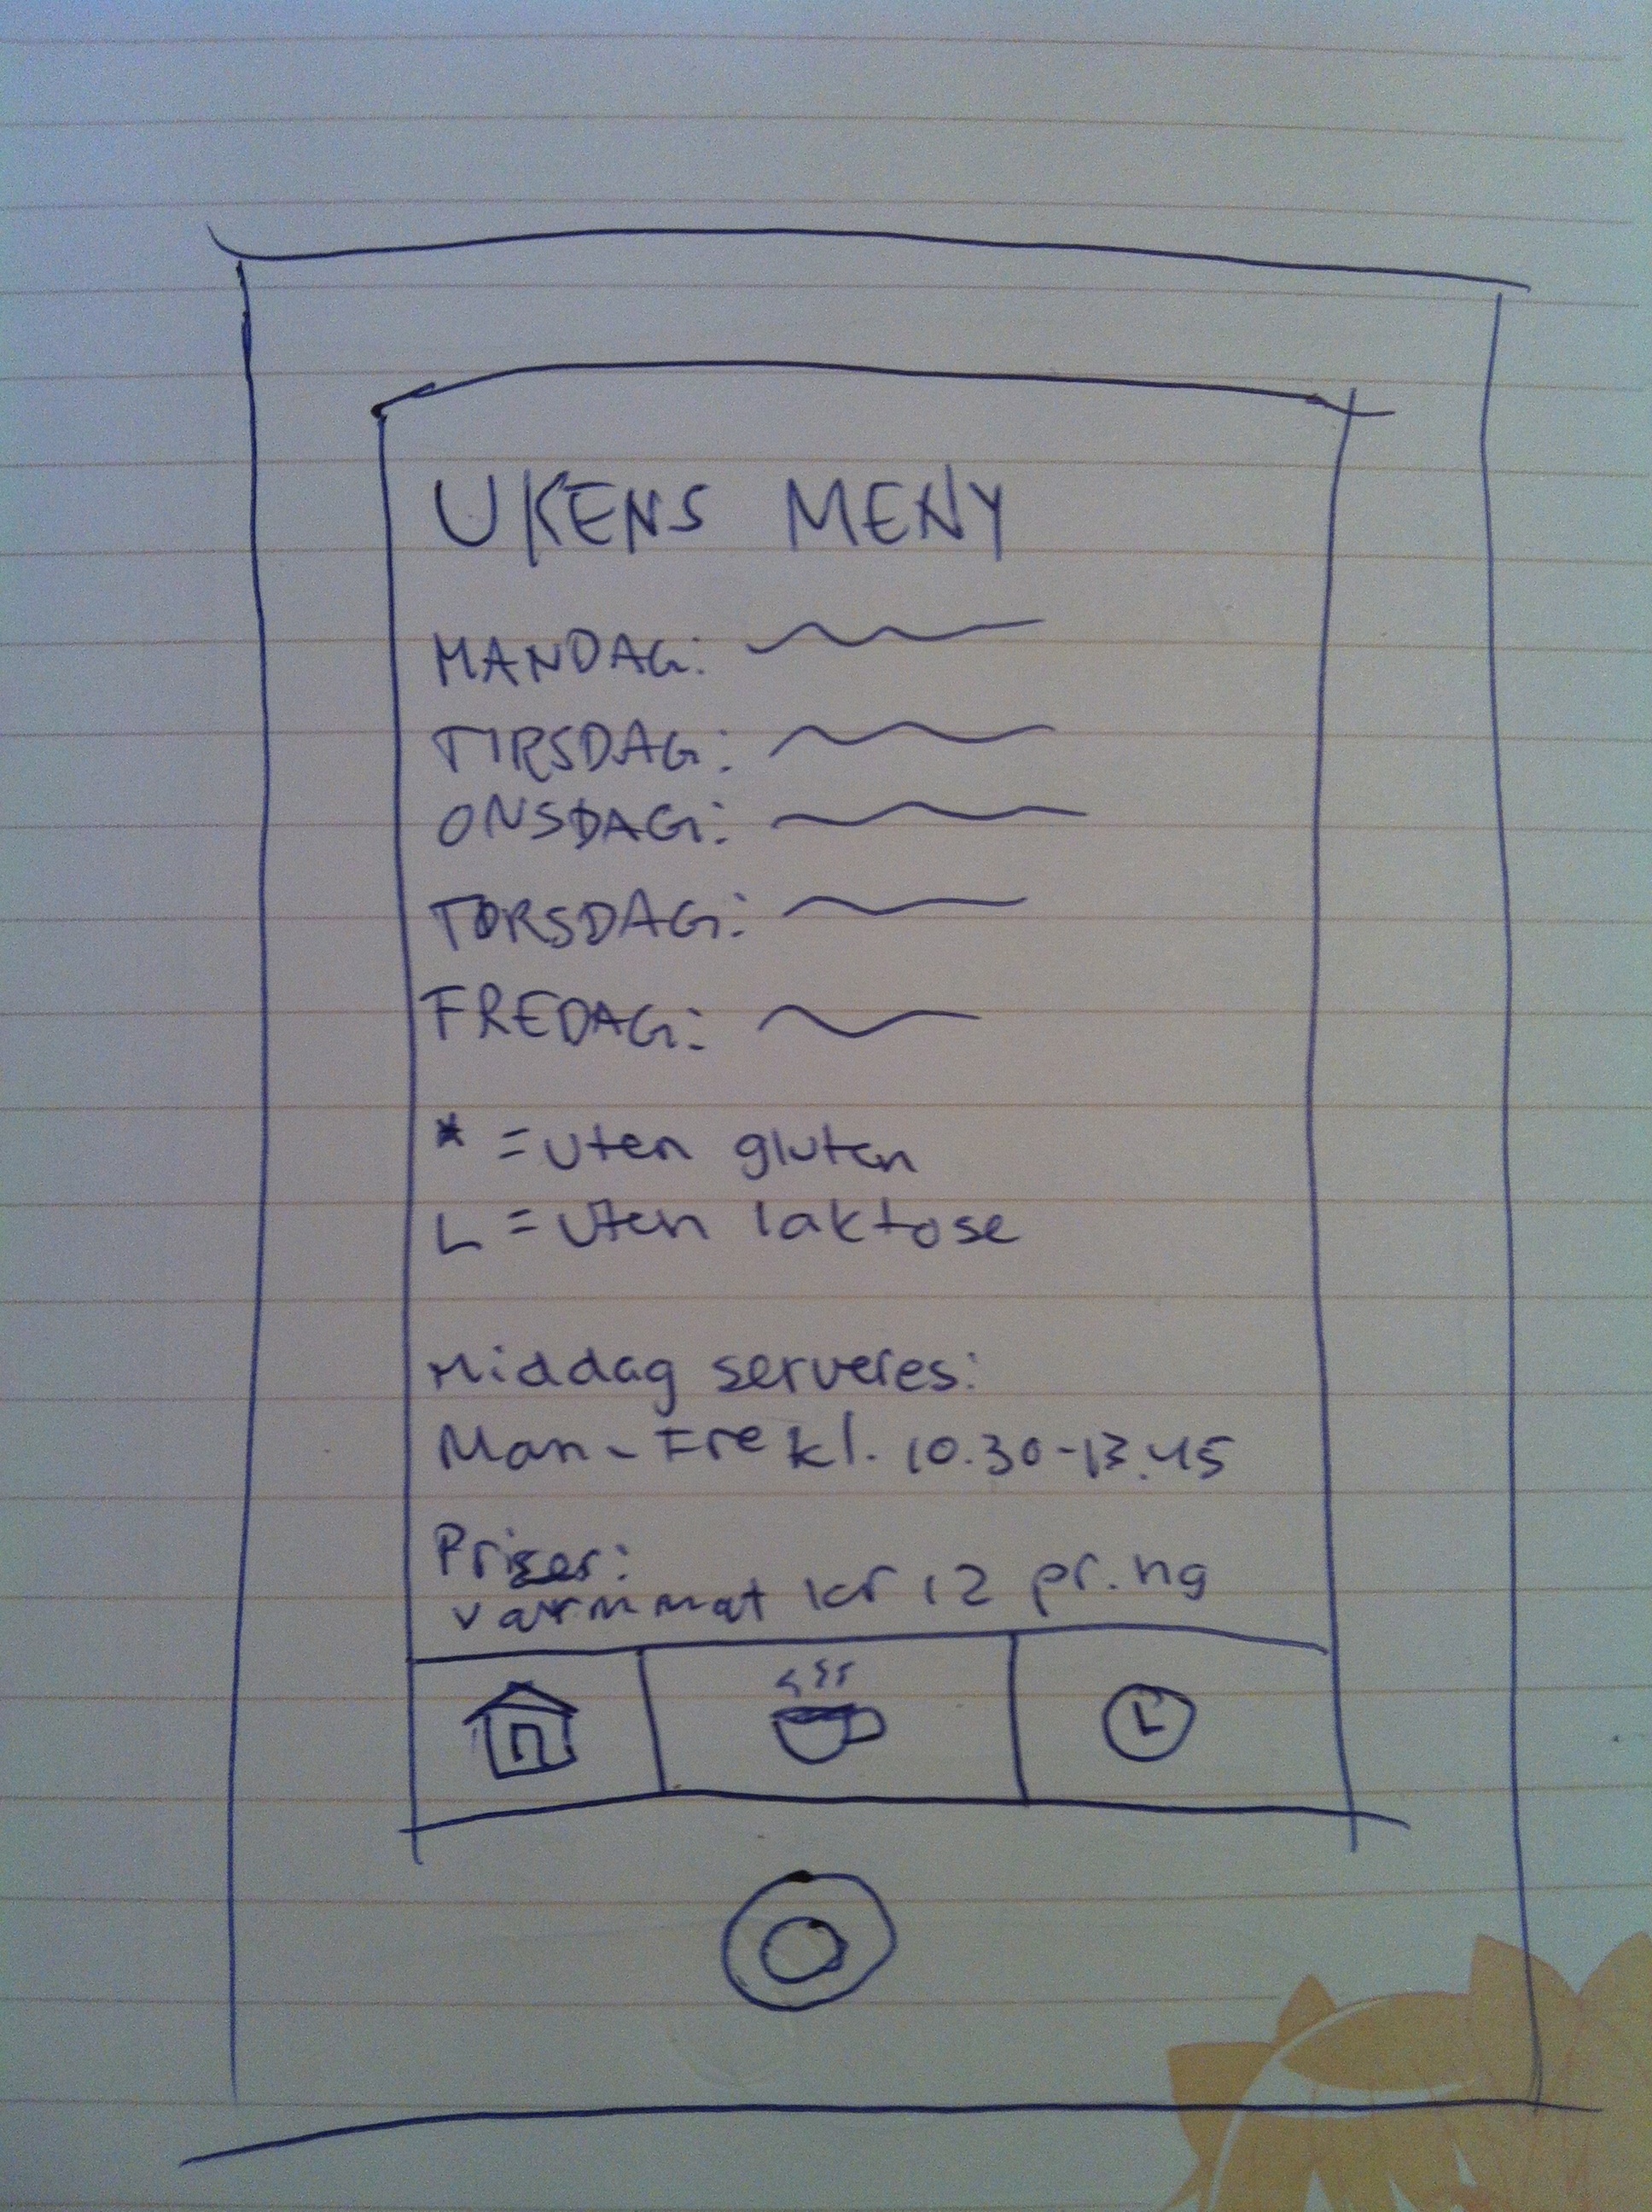 UKENS MENY
MANDAG:
TIRSDAG:
ONSDAG:
TORSDAG:
FREDAG:
* = uten gluten
L = uten laktose
Middag serveres:
Man - Fre kl. 10.30-13.45
Priser:
varmmat kr 12 pr. hg